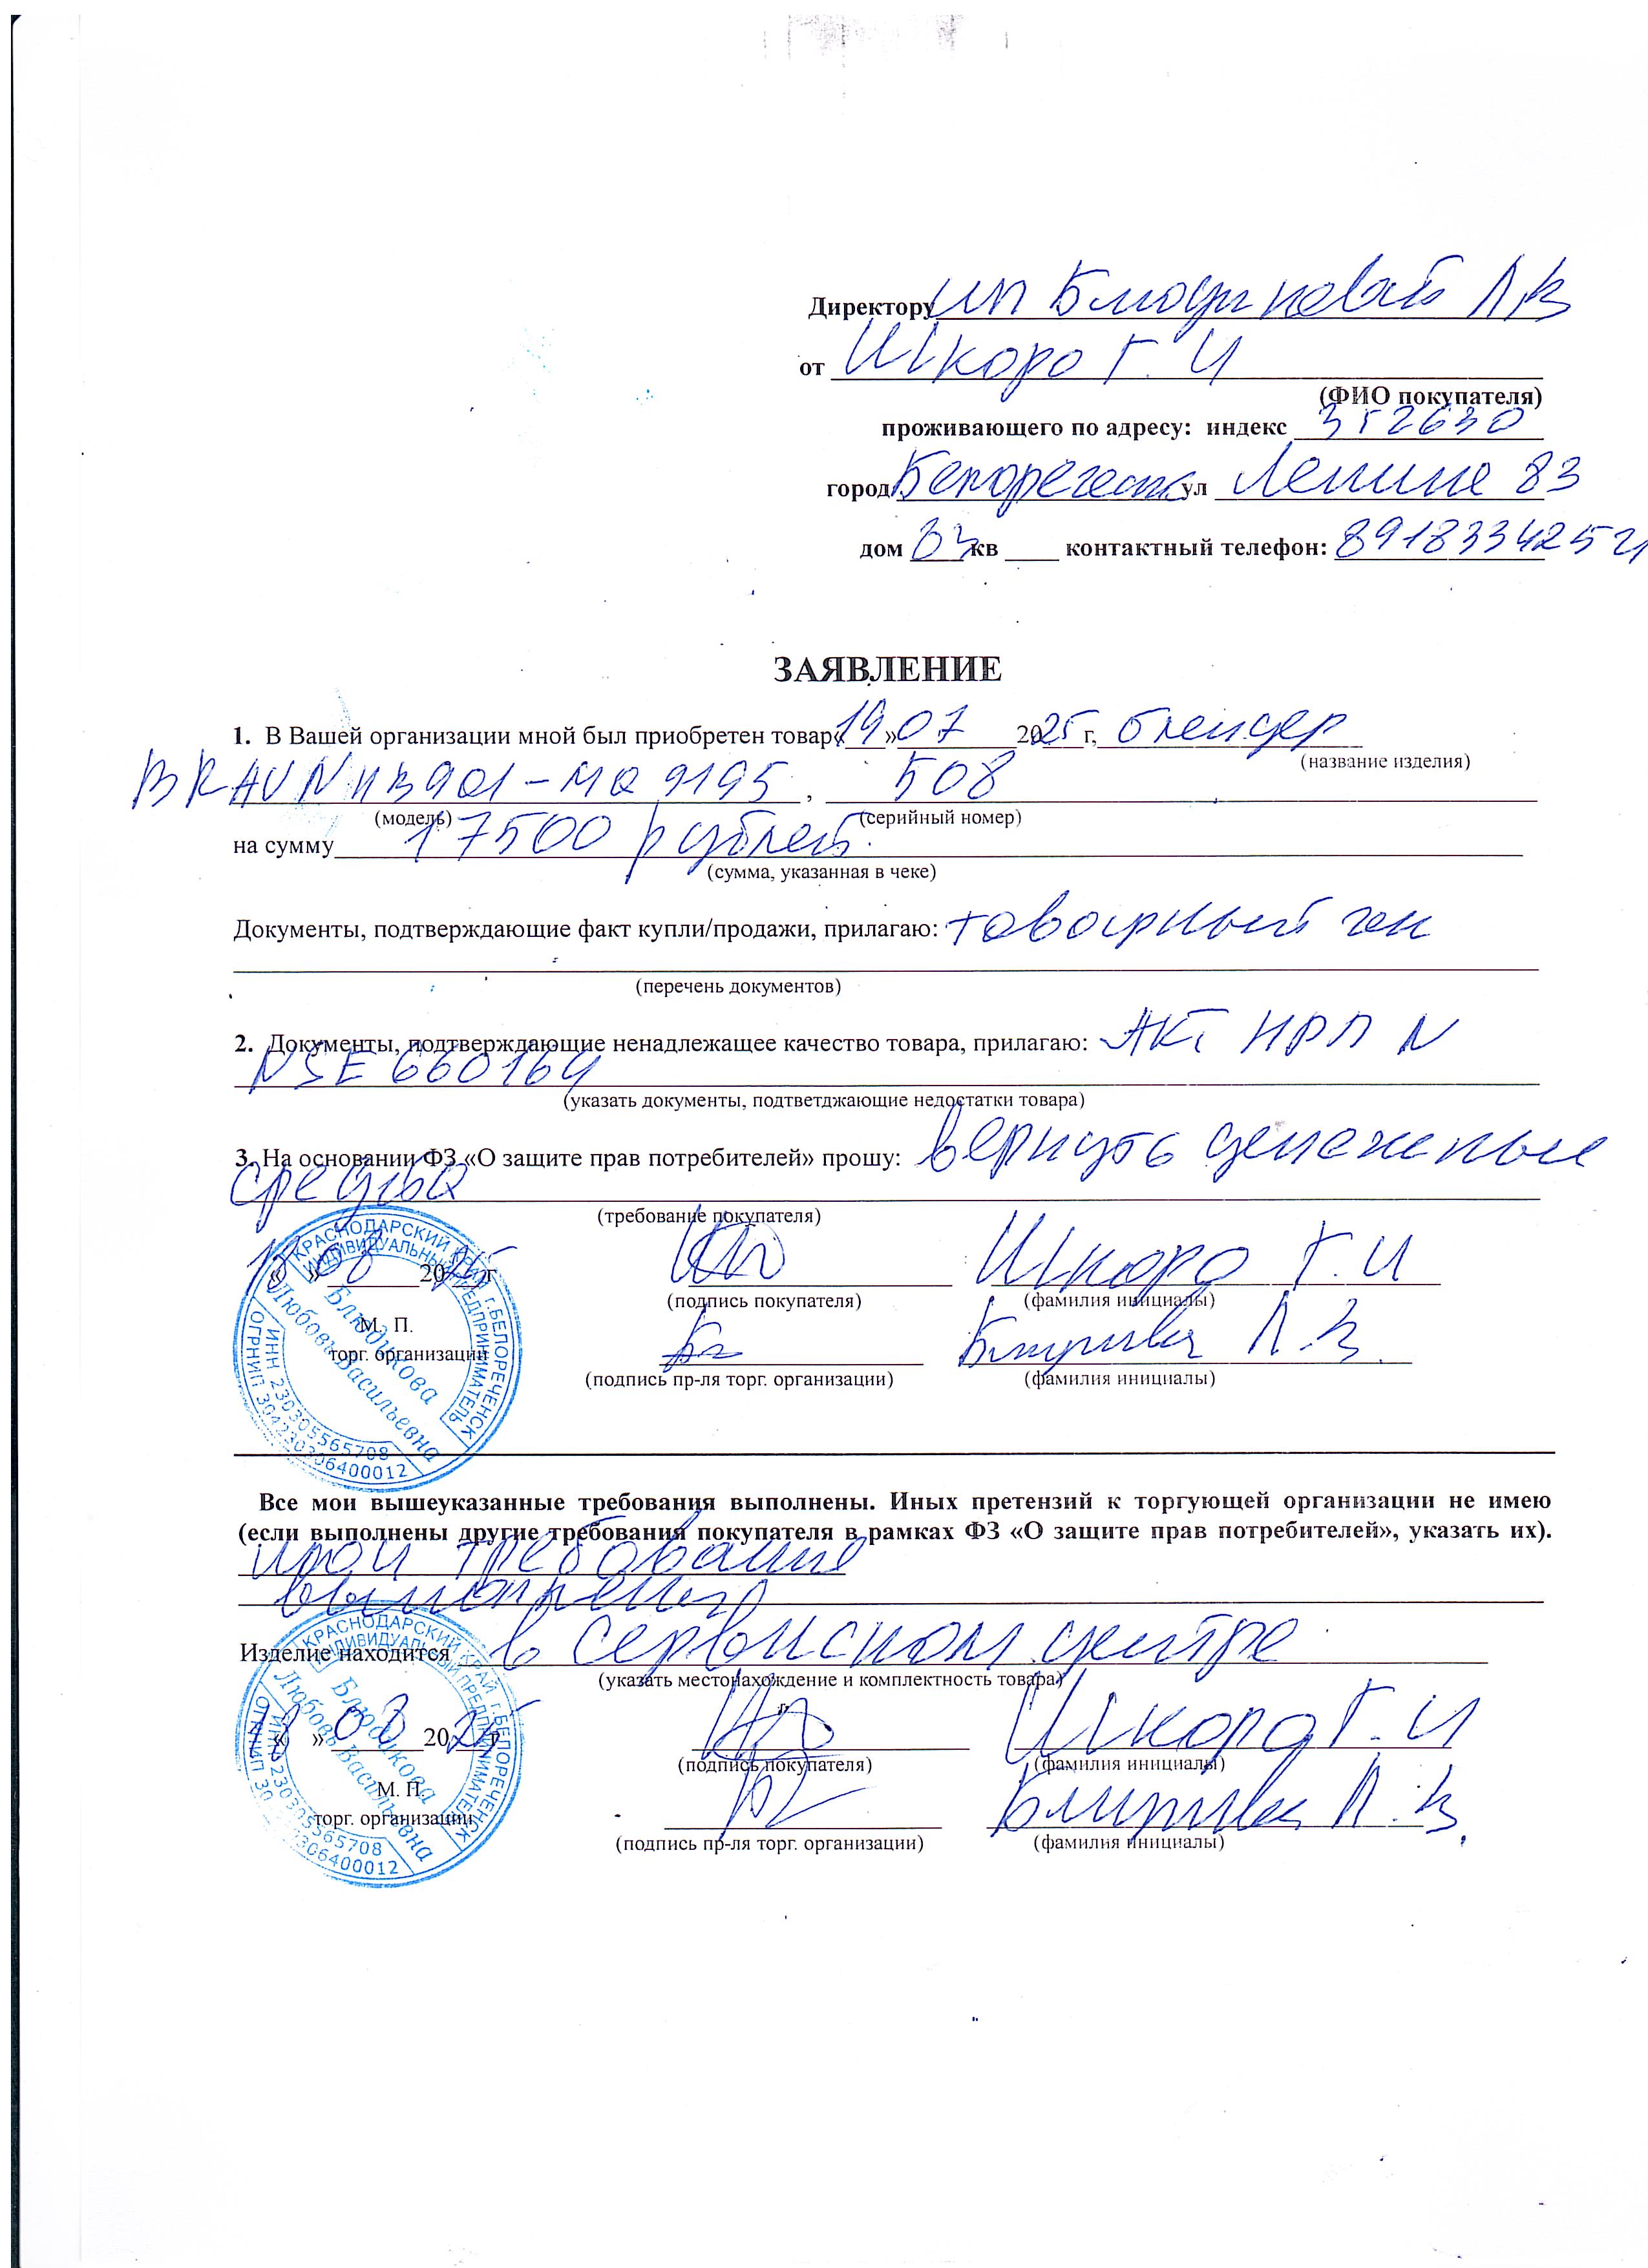 Директору ИП Блюдиковой Л.В
от Шкоро Г. И
(ФИО покупателя)
проживающего по адресу: индекс 352630
город Белореченск ул Ленина 83
дом 83 кв ____ контактный телефон:
ЗАЯВЛЕНИЕ
1. В Вашей организации мной был приобретен товар« 19 » 07 20 25 г, блендер
(название изделия)
BRAUN HB901-MQ 9195 , 508
(модель) (серийный номер)
на сумму 17500 рублей.
(сумма, указанная в чеке)
Документы, подтверждающие факт купли/продажи, прилагаю: товарный чек
(перечень документов)
2. Документы, подтверждающие ненадлежащее качество товара, прилагаю: АКТ НРП N
NSE 660164
(указать документы, подтветджающие недостатки товара)
3. На основании ФЗ «О защите прав потребителей» прошу: вернуть денежные
средства
(требование покупателя)
« » 08 20 25 г Шкоро Г. И
(подпись покупателя) (фамилия инициалы)
М. П.
торг. организации Блюдикова Л. В.
(подпись пр-ля торг. организации) (фамилия инициалы)
КРАСНОДАРСКИЙ КРАЙ г.БЕЛОРЕЧЕНСК
ИНДИВИДУАЛЬНЫЙ ПРЕДПРИНИМАТЕЛЬ
Блюдикова
Любовь Васильевна
ИНН 230305565708
ОГРНИП 304230306400012
Все мои вышеуказанные требования выполнены. Иных претензий к торгующей организации не имею
(если выполнены другие требования покупателя в рамках ФЗ «О защите прав потребителей», указать их).
мои требования
выполнены
Изделие находится в сервисном центре
(указать местонахождение и комплектность товара)
« » 08 20 25 г Шкоро Г. И
(подпись покупателя) (фамилия инициалы)
М. П.
торг. организации Блюдикова Л. В.
(подпись пр-ля торг. организации) (фамилия инициалы)
КРАСНОДАРСКИЙ КРАЙ г.БЕЛОРЕЧЕНСК
ИНДИВИДУАЛЬНЫЙ ПРЕДПРИНИМАТЕЛЬ
Блюдикова
Любовь Васильевна
ИНН 230305565708